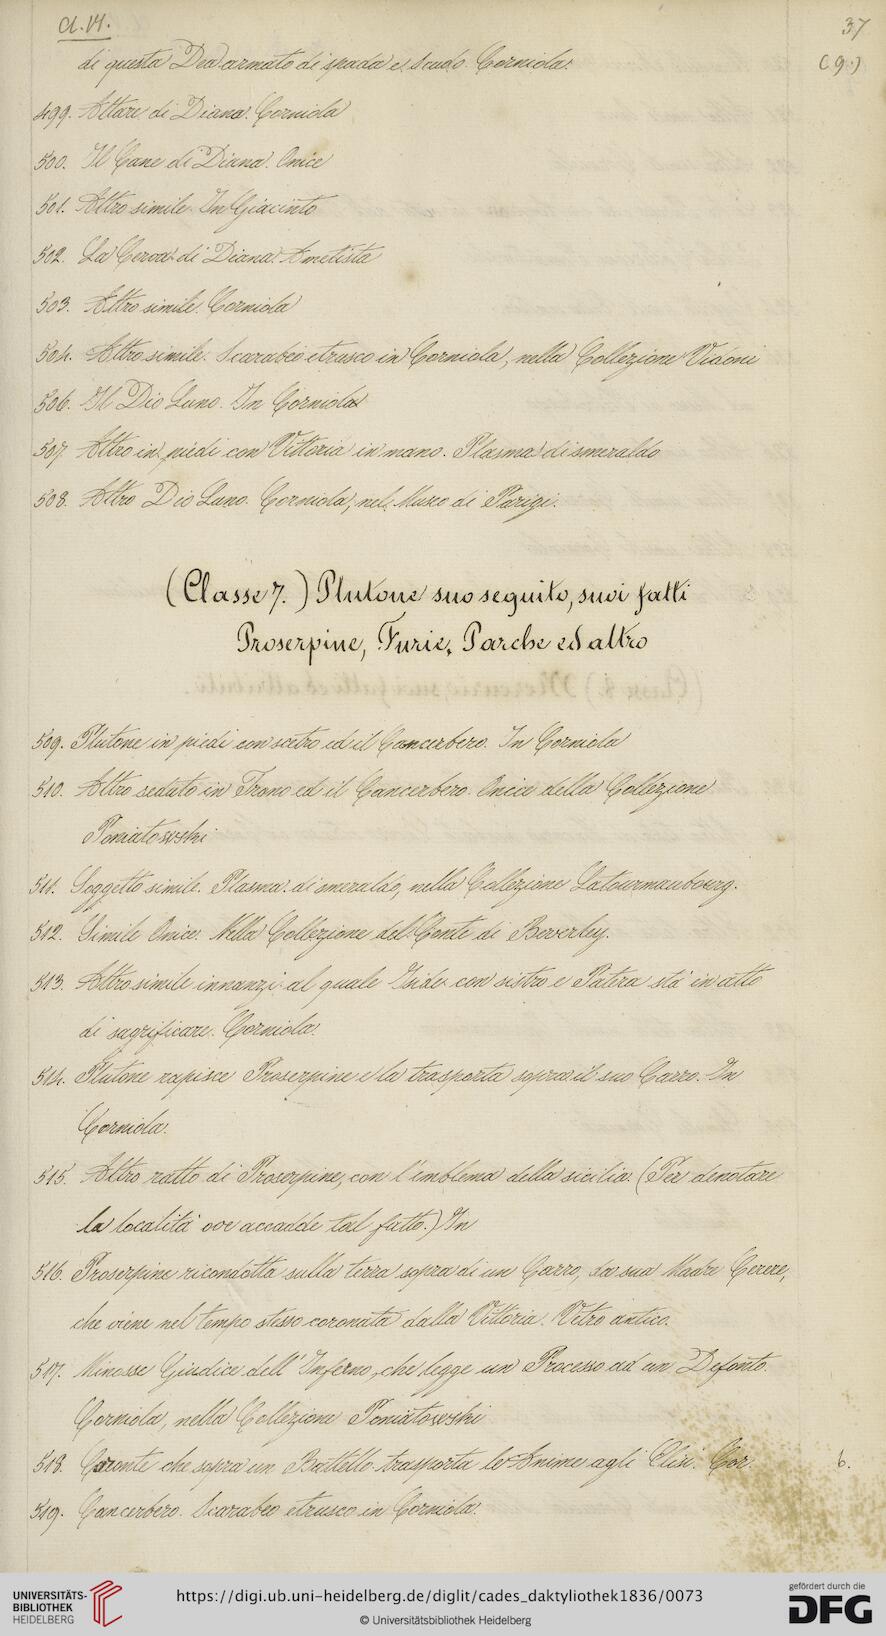 Cl. VI.
37
di questa Dea armato di spada e scudo. Corniola.
(9.)
499. Altare di Diana. Corniola
500. Il Cane di Diana. Onice
501. Altro simile. In Giacinto
502. La Cerva di Diana. Ametista
503. Altro simile. Corniola
504. Altro simile. Scarabeo etrusco in Corniola, nella Collezione Vidoni
506. Il Dio Luno. In Corniola
507. Altro in piedi con Vittoria in mano. Plasma di smeraldo
508. Altro Dio Luno. Corniola, nel Museo di Parigi.
(Classe 7.) Plutone suo seguito, suoi fatti
Proserpine, Furie, Parche ed altro
509. Plutone in piedi con scetro ed il Cancerbero. In Corniola
510. Altro seduto in Trono ed il Cancerbero. Onice della Collezione
Poniatowski
511. Soggetto simile. Plasma di smeraldo, nella Collezione Latourmaubourg.
512. Simile Onice. Nella Collezione del Conte di Beverley.
513. Altro simile innanzi al quale Iside con sistro e Patera stà in atto
di sagrificare. Corniola.
514. Plutone rapisce Proserpine e la trasporta sopra il suo Carro. In
Corniola.
515. Altro ratto di Proserpine, con l'emblema della sicilia. (Per denotare
la località ove accadde tal fatto.) In
516. Proserpine ricondotta sulla terra sopra di un Carro, da sua Madre Cerere,
che viene nel tempo stesso coronata dalla Vittoria. Vetro antico.
517. Minosse Giudice dell' Inferno, che legge un Processo ad un Defonto.
Corniola, nella Collezione Poniatowski
518. Caronte che sopra un Battello trasporta le Anime agli Elisi. Cor.
6.
519. Cancerbero. Scarabeo etrusco in Corniola.
UNIVERSITÄTS-
BIBLIOTHEK
HEIDELBERG
https://digi.ub.uni-heidelberg.de/diglit/cades_daktyliothek1836/0073
© Universitätsbibliothek Heidelberg
gefördert durch die
DFG